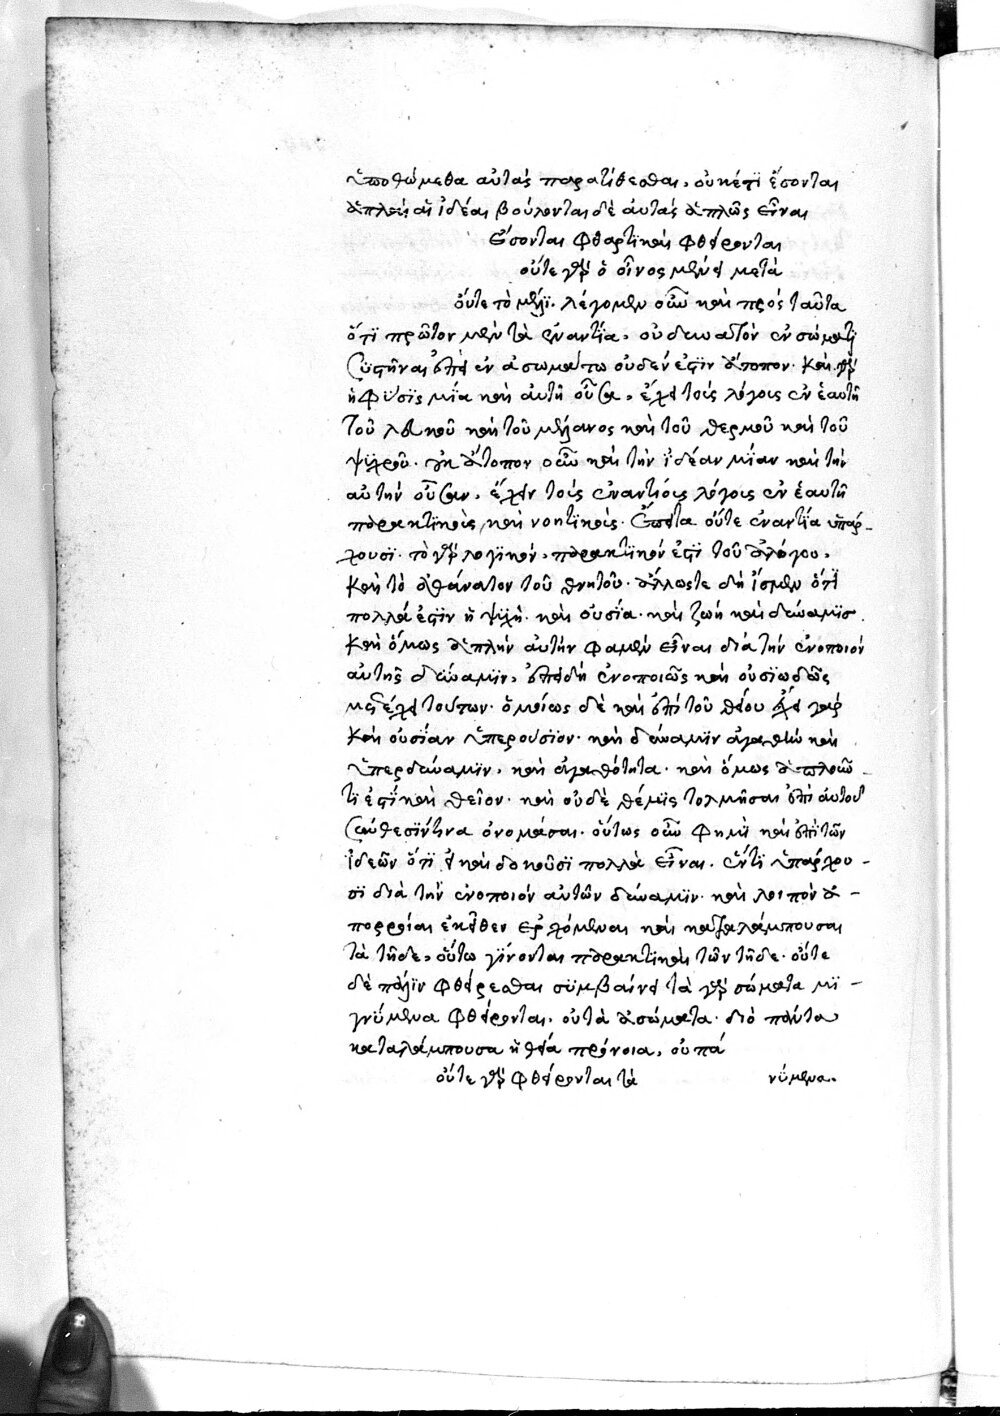 ὑποθώμεθα αὐτὰς παρατίθεσθαι, οὐκέτι ἔσονται
ἁπλαῖ αἱ ἰδέαι βούλονται δὲ αὐτὰς ἁπλῶς εἶναι
ἔσονται φθαρτικαὶ φθείρονται
οὔτε γὰρ ὁ οἶνος μένει μετὰ
οὔτε τὸ μέλι. λέγομεν οὖν καὶ πρὸς ταῦτα
ὅτι πρῶτον μὲν τὰ ἐναντία, οὐ δυνατὸν ἐν σώματι
συστῆναι ἐπεὶ ἐν ἀσωμάτω οὐδέν ἐστιν ἄτοπον. καὶ γὰρ
ἡ φύσις μία καὶ αὐτὴ οὖσα, ἔχει τοὺς λόγους ἐν ἑαυτῇ
τοῦ λευκοῦ καὶ τοῦ μέλανος καὶ τοῦ θερμοῦ καὶ τοῦ
ψυχροῦ. οὐκ ἄτοπον οὖν καὶ τὴν ἰδέαν μίαν καὶ τὴν
αὐτὴν οὖσαν, ἔχειν τοὺς ἐναντίους λόγους ἐν ἑαυτῇ
παρακτικοὺς καὶ νοητικοὺς. ἔπειτα οὔτε ἐναντία ὑπάρ-
χουσι. τὸ γὰρ λογικόν, παρακτικόν ἐστι τοῦ ἀλόγου,
καὶ τὸ ἀθάνατον τοῦ θνητοῦ. ἄλλωστε δὴ ἴσμεν ὅτι
πολλά ἐστιν ἡ ψυχὴ. καὶ οὐσία. καὶ ζωὴ καὶ δύναμις
καὶ ὅμως ἁπλῆν αὐτήν φαμεν εἶναι διὰ τὴν ἑνοποιὸν
αὐτῆς δύναμιν, ἐπειδὴ ἑνοποιῶς καὶ οὐσιωδῶς
μετέχει τούτων. ὁμοίως δὲ καὶ ἐπὶ τοῦ θείου ἔχει γὰρ
καὶ οὐσίαν ὑπερούσιον. καὶ δύναμιν ἀγαθὴν καὶ
ὑπερδύναμιν, καὶ ἀγαθότητα. καὶ ὅμως ἁπλοῦν
τί ἐστι καὶ θεῖον. καὶ οὐδὲ θέμις τολμῆσαι ἐπὶ αὐτοῦ
σύνθεσίν τινα ὀνομάσαι. οὕτως οὖν φημὶ καὶ ἐπὶ τῶν
ἰδεῶν ὅτι εἰ καὶ δοκοῦσι πολλὰ εἶναι. ἕν τι ὑπάρχου-
σι διὰ τὴν ἑνοποιὸν αὐτῶν δύναμιν. καὶ λοιπὸν ἀ-
πορροίαι ἐκεῖθεν ἐρχόμεναι καὶ καταλάμπουσαι
τὰ τῇδε, οὕτω γίνονται παρακτικαὶ τῶν τῇδε. οὔτε
δὲ πάλιν φθείρεσθαι συμβαίνει τὰ γὰρ σώματα μι-
γνύμενα φθείρονται, οὐ τὰ ἀσώματα. διὸ πάντα
καταλάμπουσα ἡ θεία πρόνοια, οὐ πά
οὔτε γὰρ φθείρονται τὰ νύμενα.